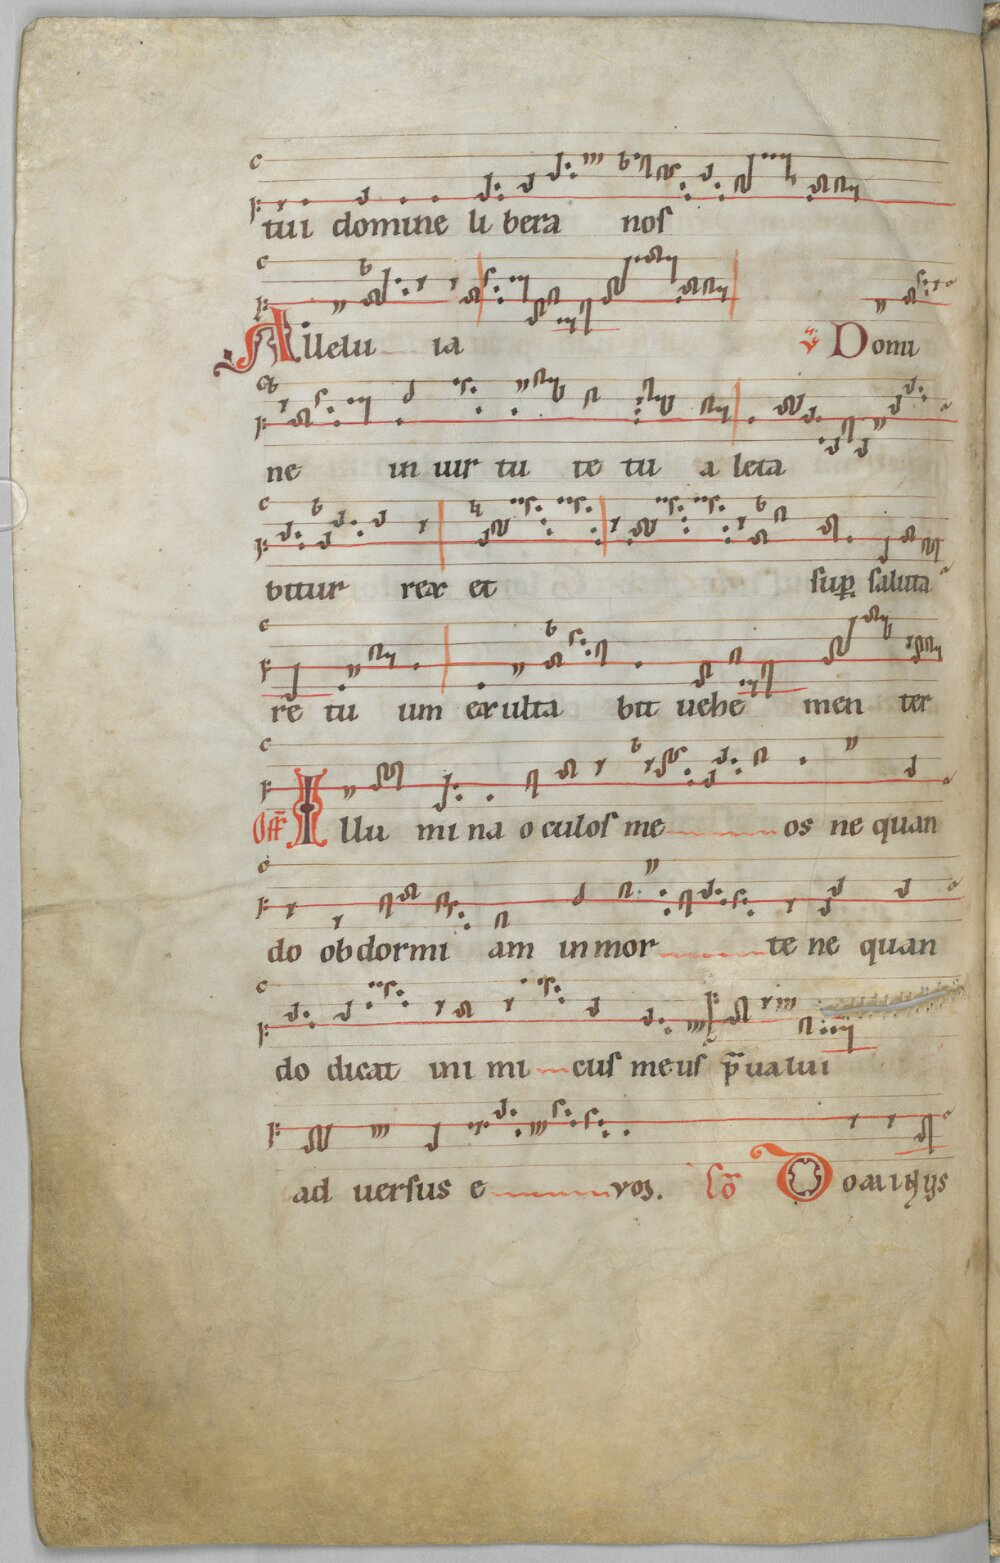 tui domine li bera nos
Allelu ia ℣ Domi
ne in uir tu te tu a leta
bitur rex et sup saluta
re tu um exulta bit uehe men ter
Off Illu mi na oculos me os ne quan
do obdormi am in mor te ne quan
do dicat ini mi cus meus p̄ualui
ad uersus e voz. Co Dominus